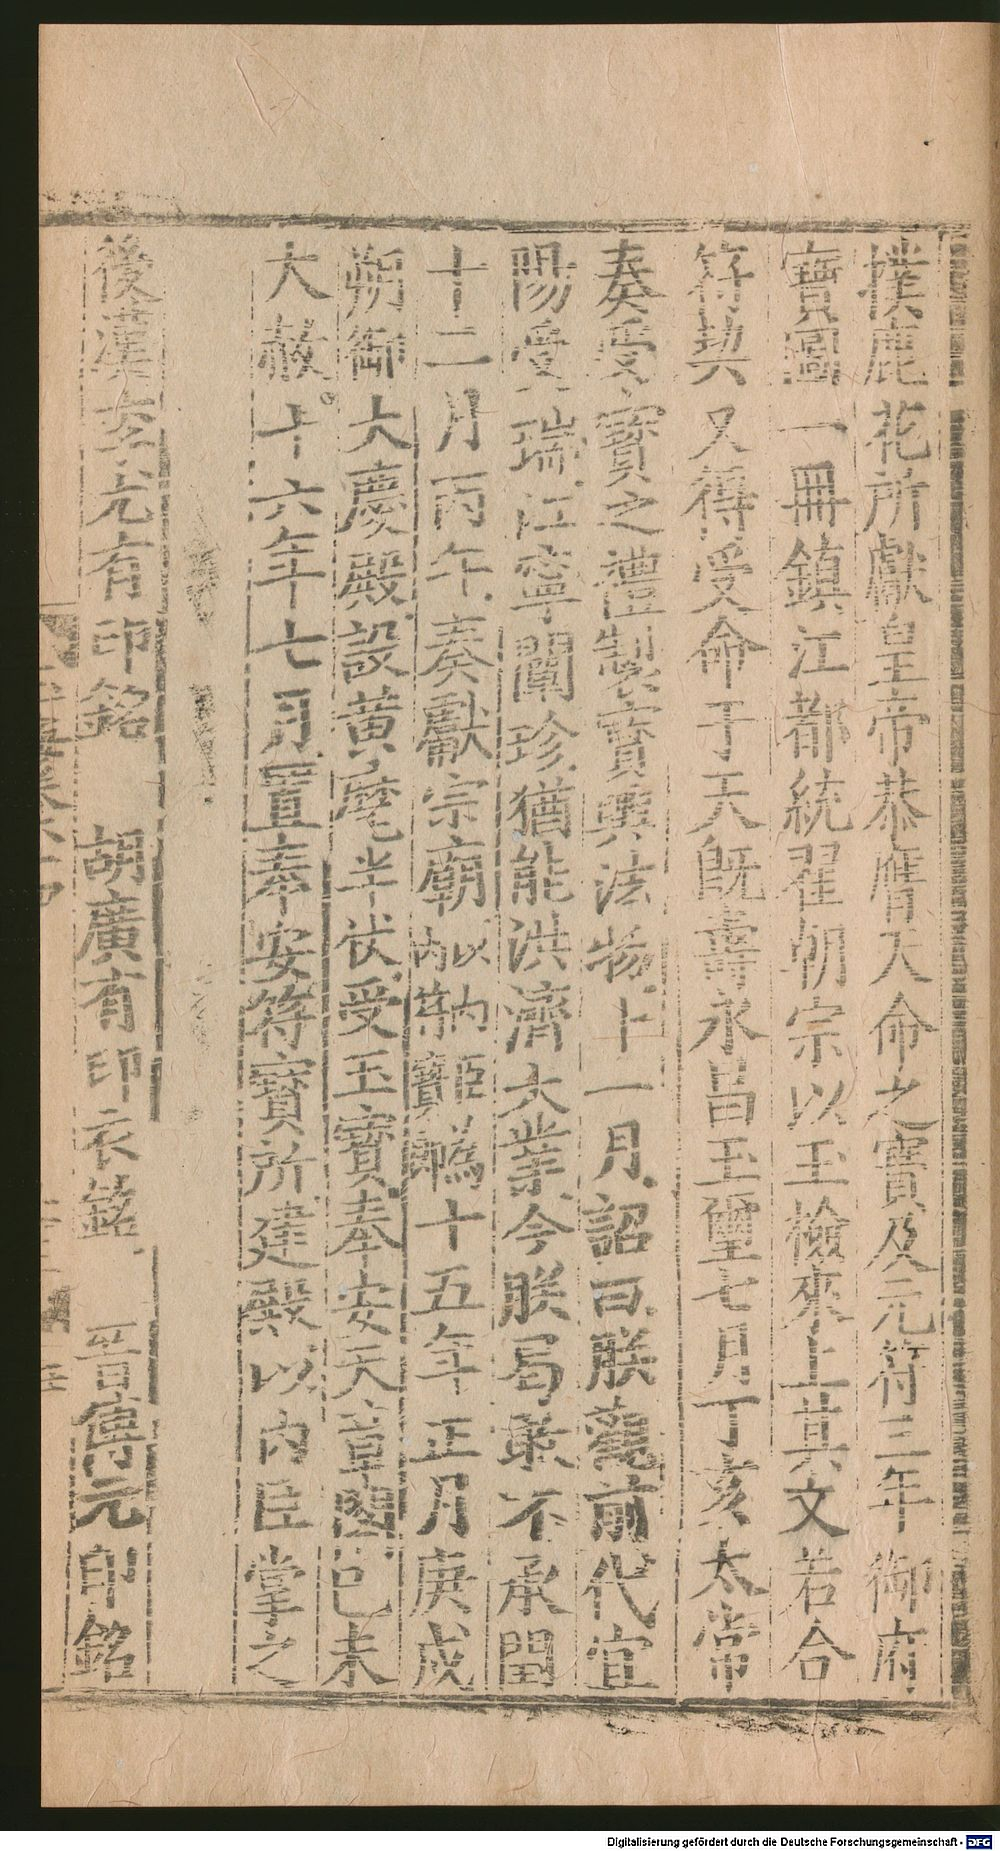 撲鹿花所獻皇帝恭膺天命之寶及元符三年御府
寶圖一冊鎮江都統翟朝宗以玉檢來上其文若合
符契又得受命于天既壽永昌玉璽七月丁亥太常
奏受寶之禮製寶輿法物十一月詔曰朕觀前代宜
陽受瑞江寧闡珍猶能洪濟大業今朕曷敢不承閏
十二月丙午奏獻宗廟以內臣為內符寶郎十五年正月庚戌
朔御大慶殿設黃麾半仗受玉寶奉安天章閣己未
大赦十六年七月置奉安符寶所建殿以內臣掌之
後漢 有印銘 胡廣有印衣銘 晉傅元印銘
Digitalisierung gefördert durch die Deutsche Forschungsgemeinschaft - DFG